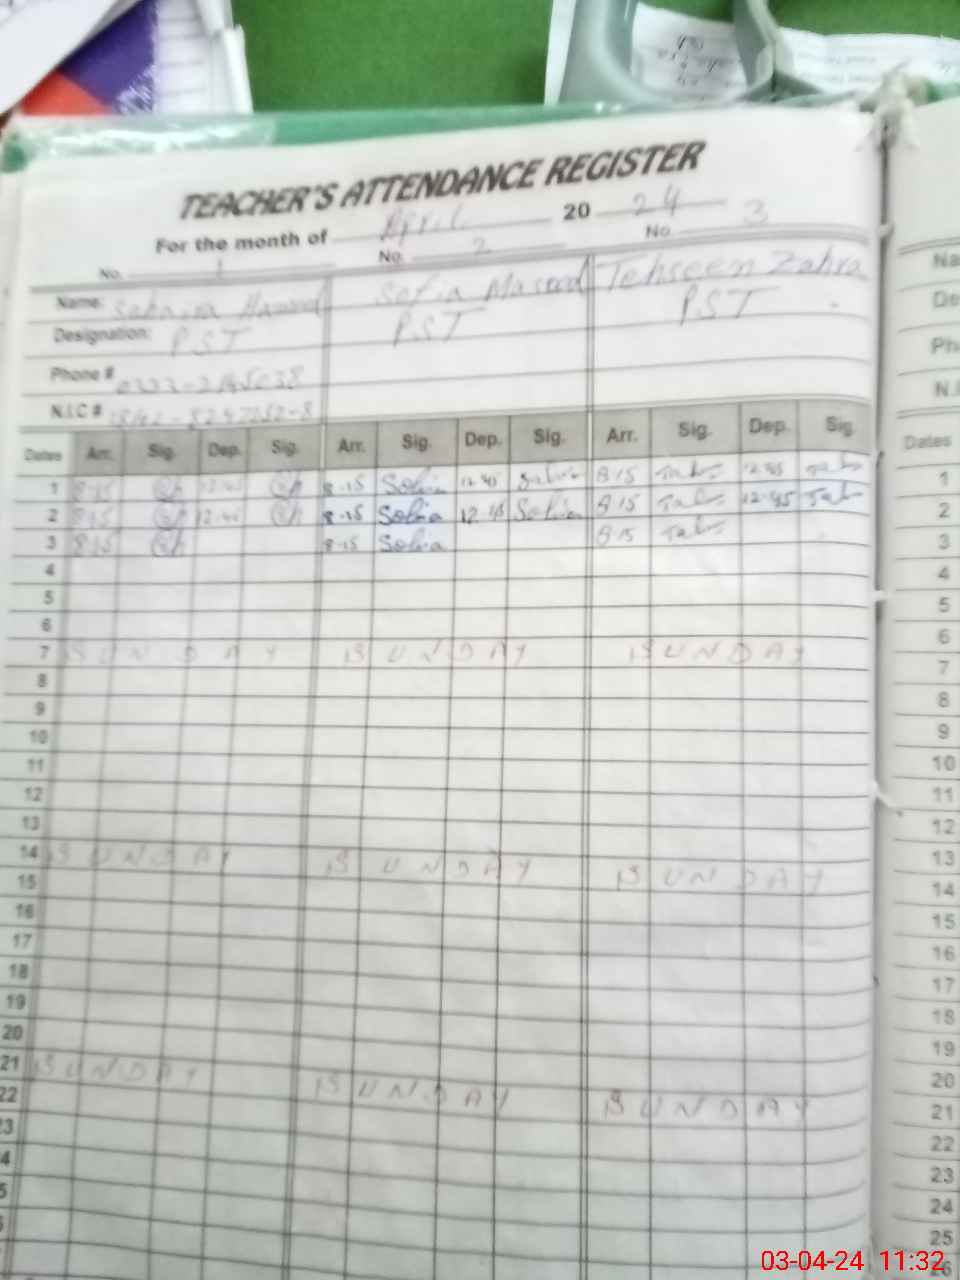 TEACHER'S ATTENDANCE REGISTER
For the month of April 20 24
No. 1 No. 2 No. 3
Name: Sofia Masood Tehseen Zahra
Designation: PST PST PST
Phone #
N.I.C #
Dates Arr. Sig. Dep. Sig. Arr. Sig. Dep. Sig. Arr. Sig. Dep. Sig.
1 8-15 12-45 8-15 Sofia 12-45 Sofia 8-15 12-45
2 8-15 12-45 8-15 Sofia 12-45 Sofia 8-15 12-45
3 8-15 8-15 Sofia 8-15
4
5
6
7 SUNDAY SUNDAY SUNDAY
8
9
10
11
12
13
14 SUNDAY SUNDAY SUNDAY
15
16
17
18
19
20
21 SUNDAY SUNDAY SUNDAY
22
23
Na
De
Ph
N.I
Dates
1
2
3
4
5
6
7
8
9
10
11
12
13
14
15
16
17
18
19
20
21
22
23
24
25
26
03-04-24 11:32